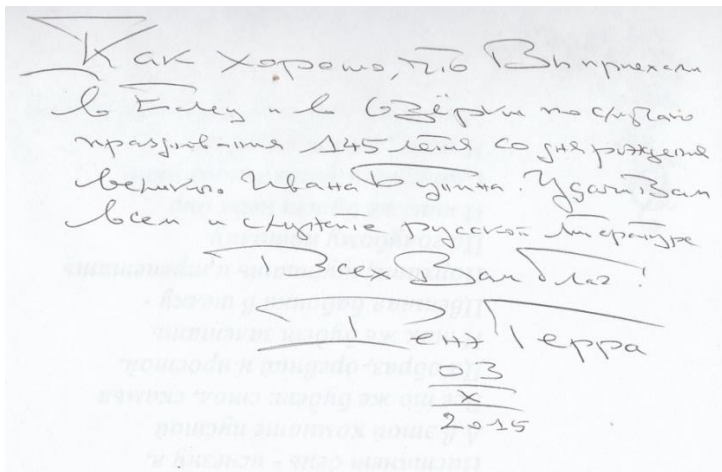 Как хорошо, что Вы приехали
в Елец и в Озёрки по случаю
празднования 145 летия со дня рождения
великого Ивана Бунина. Удачи Вам
всем служение русской литературе
Всех Вам благ!
Ренэ Герра
03
X
2015